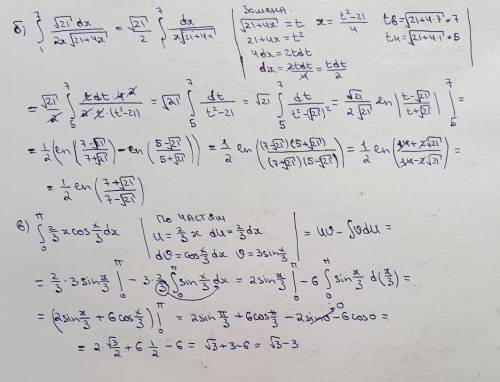 б) ∫₁⁷ √21 dx / (2x√(21+4x)) = √21/2 ∫₁⁷ dx / (x√(21+4x)) | Замена: √(21+4x) = t x = (t²-21)/4 tв = √(21+4·7) = 7
21+4x = t² tн = √(21+4·1) = 5
4dx = 2tdt
dx = 2tdt/4 = tdt/2
= √21/2 ∫₅⁷ tdt 4 2 / (2 t·(t²-21)) = √21 ∫₅⁷ dt/(t²-21) = √21 ∫₅⁷ dt/(t²-√21)² = √21/(2√21) ln |(t-√21)/(t+√21)| |₅⁷ =
= 1/2 (ln((7-√21)/(7+√21)) - ln((5-√21)/(5+√21))) = 1/2 ln((7-√21)(5+√21)/((7+√21)(5-√21))) = 1/2 ln((14+2√21)/(14-2√21)) =
= 1/2 ln((7+√21)/(7-√21))
в) ∫₀^π 2/3 x cos x/3 dx | по частям
u = 2/3 x du = 2/3 dx
dv = cos x/3 dx v = 3 sin x/3 | = uv - ∫vdu =
= 2/3 · 3 sin x/3 |₀^π - 3 · 2/3 ∫₀^π sin x/3 dx = 2 sin x/3 |₀^π - 6 ∫₀^π sin x/3 d(x/3) =
= (2 sin x/3 + 6 cos x/3) |₀^π = 2 sin π/3 + 6 cos π/3 - 2 sin 0 - 6 cos 0 =
= 2 · √3/2 + 6 · 1/2 - 6 = √3 + 3 - 6 = √3 - 3